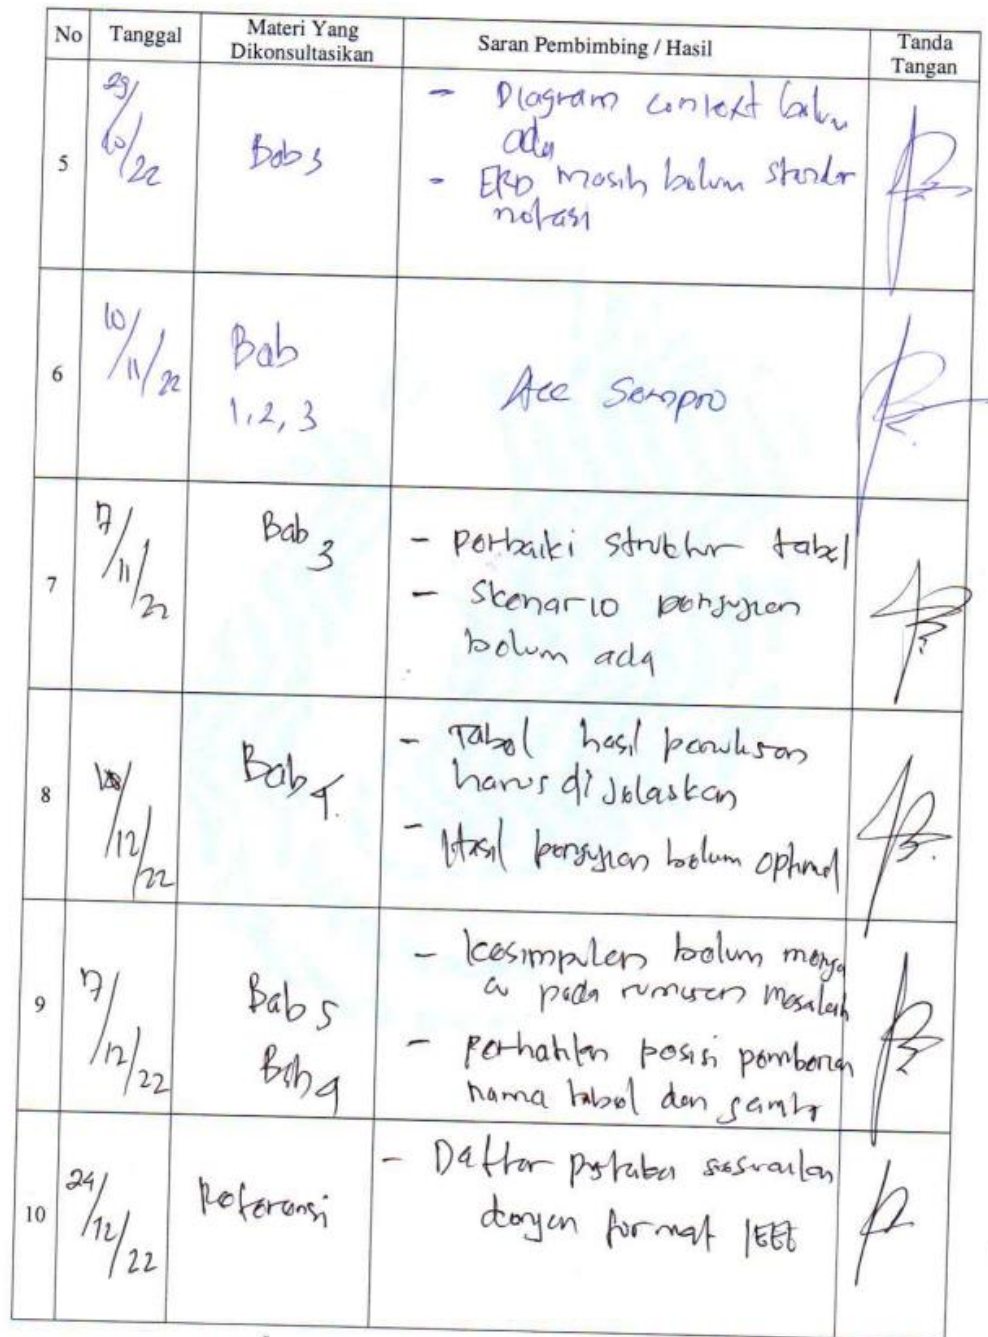 No Tanggal Materi Yang Dikonsultasikan Saran Pembimbing / Hasil Tanda Tangan
5 29/10/22 Bab 3
- Diagram context belum
ada
- ERD masih belum standar
notasi
6 10/11/22 Bab
1, 2, 3
Acc Sempro
7 17/11/22 Bab 3
- Perbaiki struktur tabel
- Skenario pengujian
belum ada
8 /12/22 Bab 4.
- Tabel hasil
harus di jelaskan
- Hasil pengujian belum optimal
9 17/12/22 Bab 5
Bab 4
- Kesimpulan belum menga
cu pada rumusan masalah
- Perhatikan posisi pemberian
nama tabel dan gambar
10 24/12/22 Referensi
- Daftar pustaka sesuaikan
dengan format IEEE